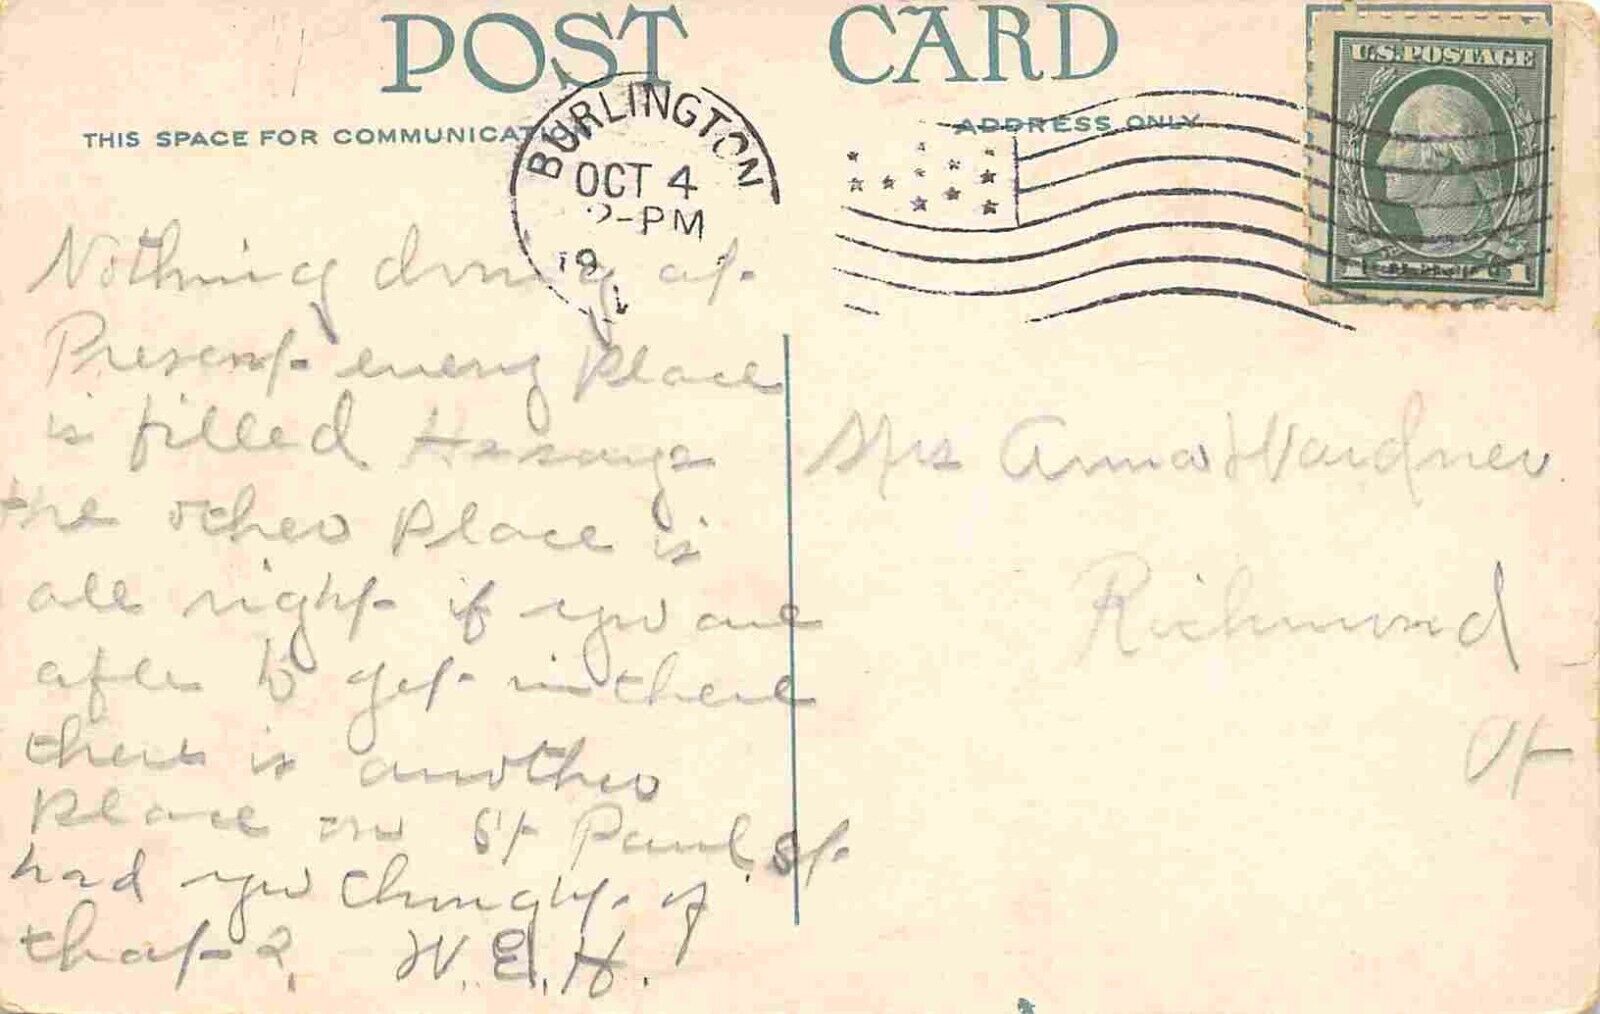 POST CARD
THIS SPACE FOR COMMUNICATION
ADDRESS ONLY
BURLINGTON
OCT 4
2-PM
19
U.S. POSTAGE
1 1
Nothing doing at
Present every Place
is filled He says
the other Place is
all right if you are
after to get in there
there is another
Place on St Paul St
had you thought of
that? W.E.H.
Mrs Anna Wardner
Richmond
Vt